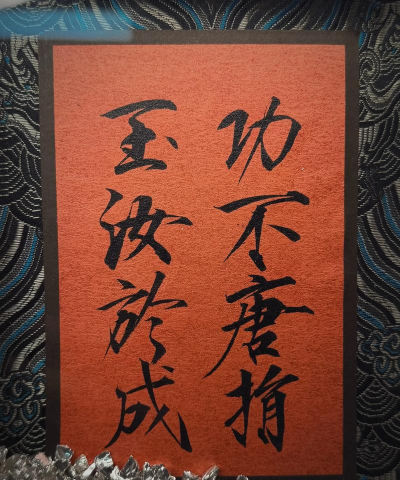 功不唐捐
玉汝於成